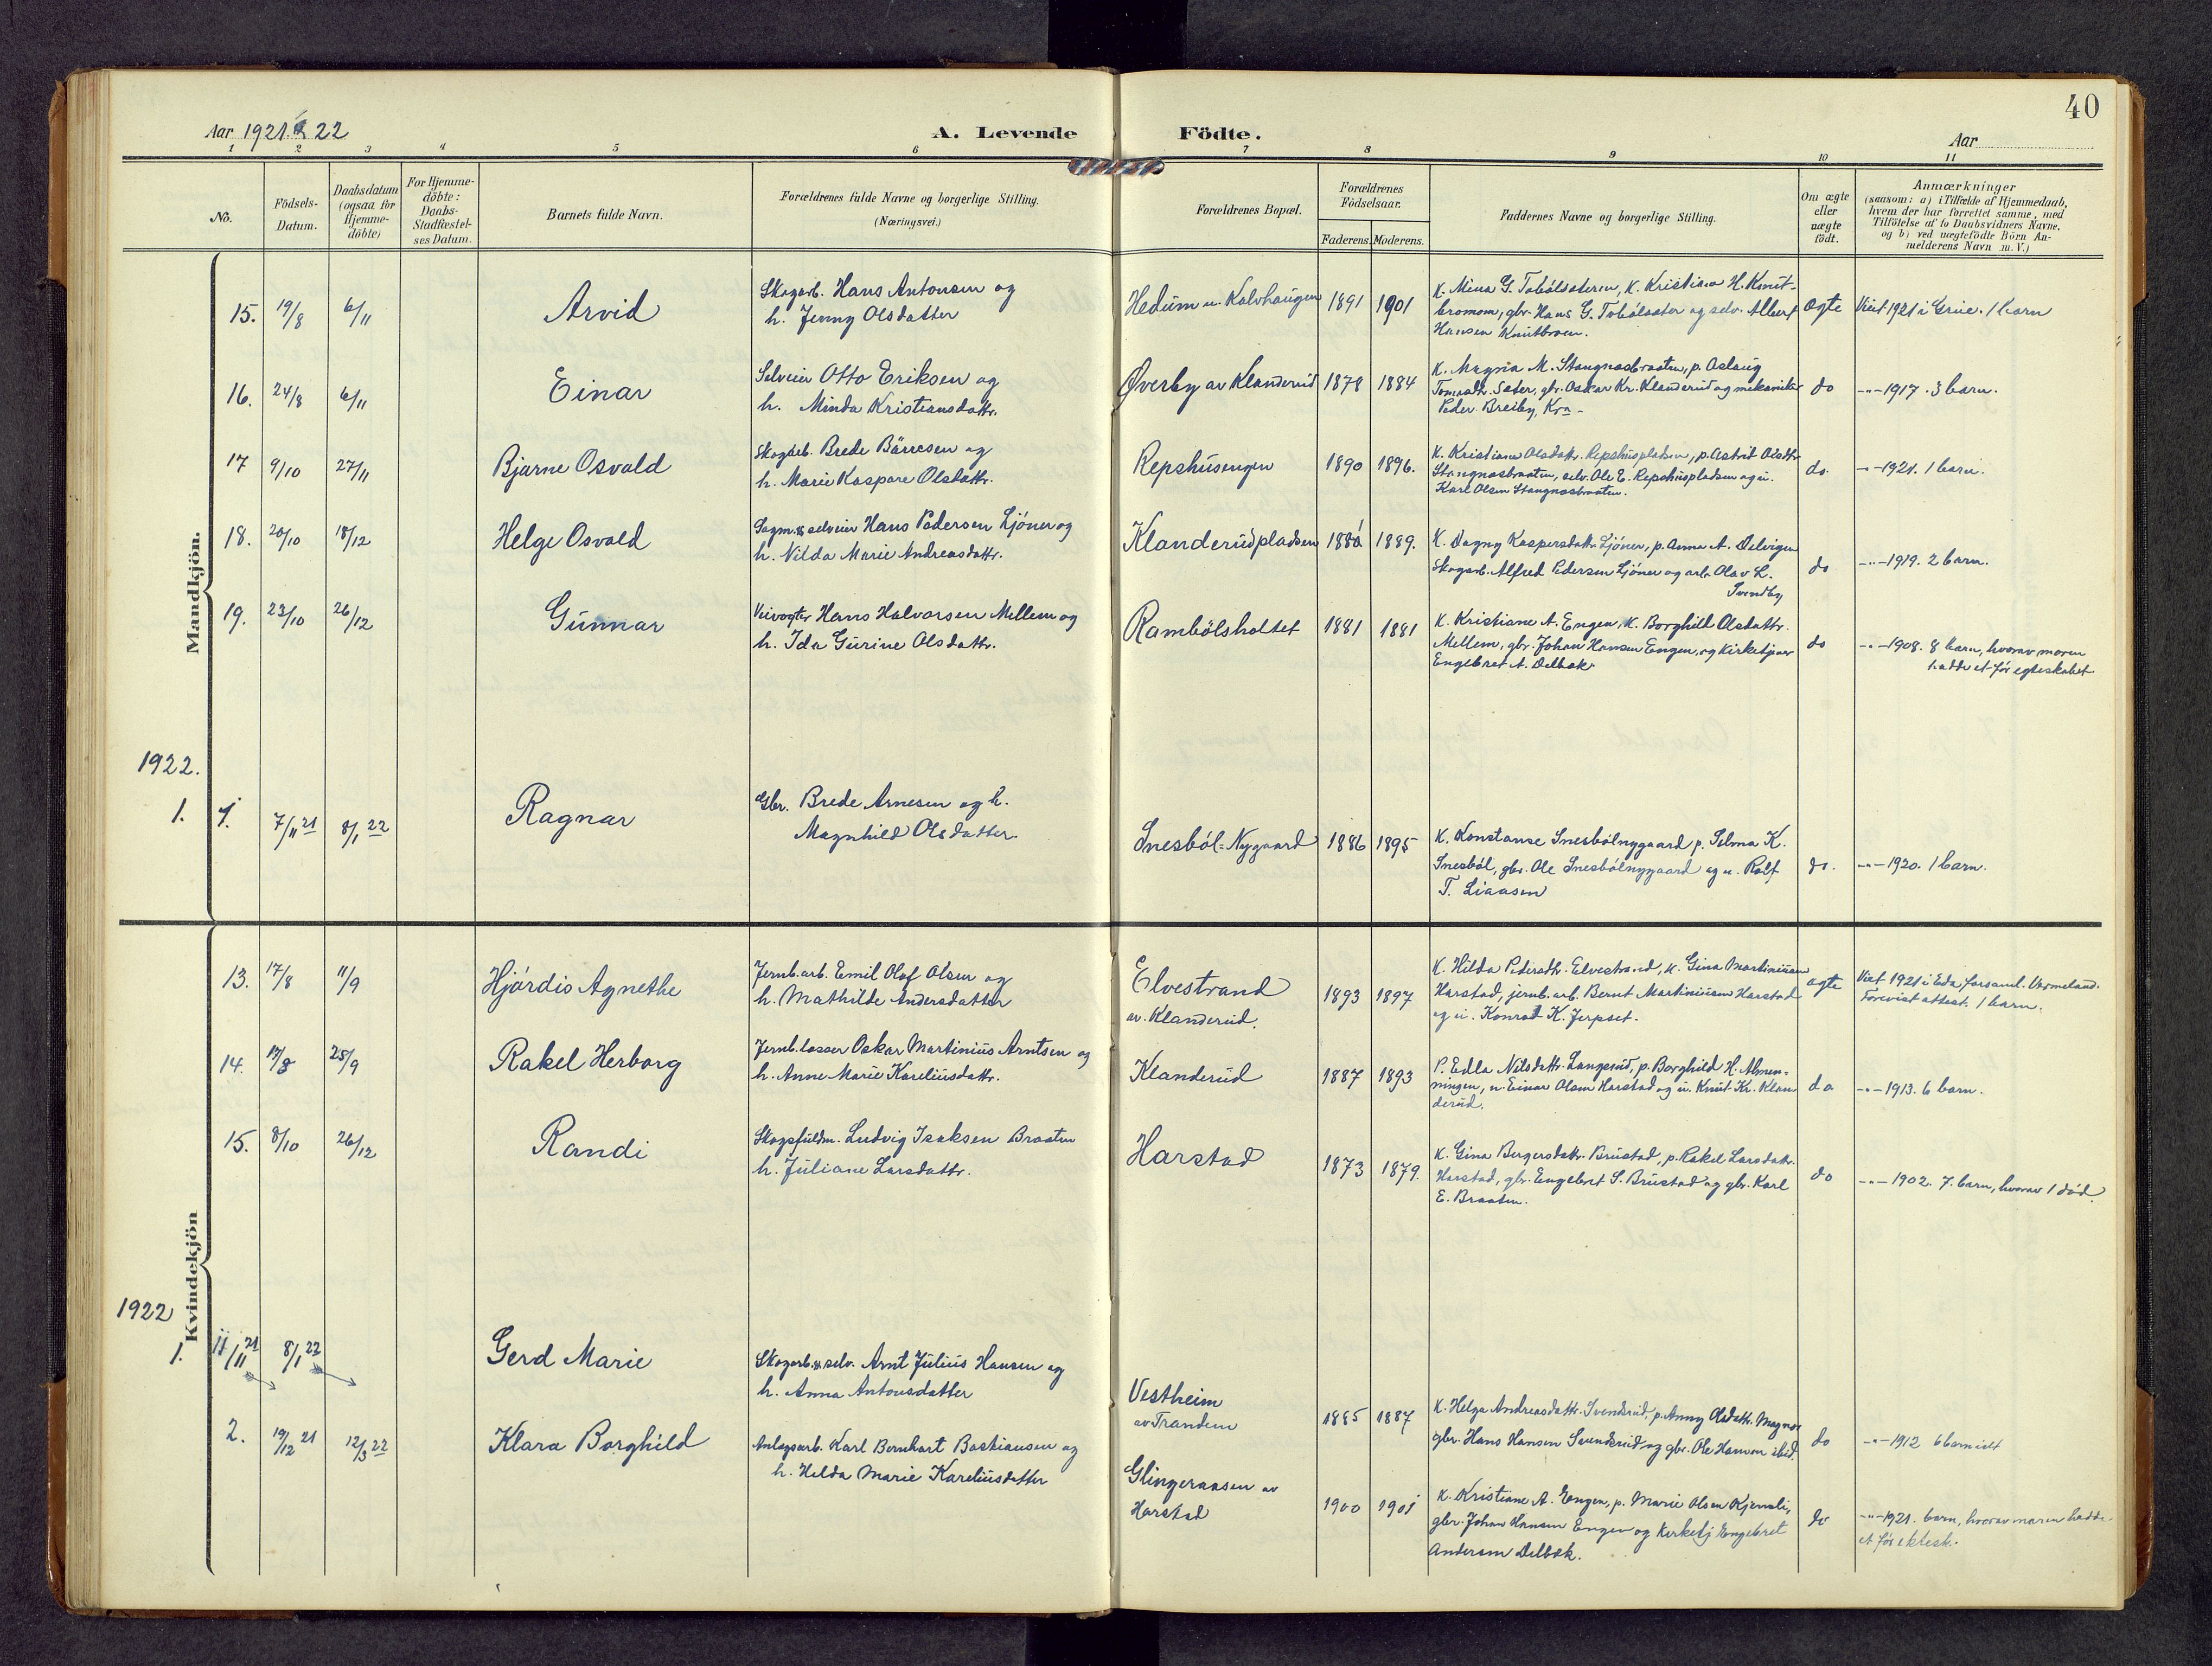 40
Aar 1921 & 22
A. Levende Födte.
Aar
1 2 3 4 5 6 7 8 9 10 11
No.
Födsels-
Datum.
Daabsdatum
(ogsaa for
Hjemme-
döbte)
For Hjemme-
döbte:
Daabs-
Stadfæstel-
ses Datum.
Barnets fulde Navn.
Forældrenes fulde Navne og borgerlige Stilling.
(Næringsvei.)
Forældrenes Bopæl.
Forældrenes
Födselsaar.
Faderens. Moderens.
Faddernes Navne og borgerlige Stilling.
Om ægte
eller
uægte
födt.
Anmærkninger
(saasom: a) i Tilfælde af Hjemmedaab,
hvem der har forrettet samme, med
Tilföielse af to Daabsvidners Navne,
og b) ved uægtefödte Börn An-
melderens Navn m. V.)
Mandkjön.
15. 19/8 6/11 Arvid
Skogarb. Hans Antonsen og
h. Jenny Olsdatter
Hedum u. Kalvhaugen 1891 1901
K. Mina G. Tobölsæteren, K. Kristiane H. Knut-
bromom, gbr. Hans G. Tobölsæter og selv. Albert
Hansen Knutbroen.
ægte
Viet 1921 i Grue. 1 barn
16. 24/8 6/11 Einar
Selveier Otto Eriksen og
h. Minda Kristiansdattr.
Øverby av Klanderud 1878 1884
K. Magna M. Stangnesbraaten, p. Aslaug
Tomasdtr. Sæter, gbr. Oskar Kr. Klanderud og mekaniker
Peder Breiby, Kra-
do
-"- 1917. 3 barn.
17 9/10 27/11 Bjarne Osvald
Skogarb. Brede Börresen og
h. Marie Kaspare Olsdattr.
Repshusengen 1890 1896.
K. Kristiane Olsdattr. Repshuspladsen, p. Astrid Olsdtr.
Stangnesbraaten, selv. Ole E. Repshuspladsen og u.
Karl Olsen Stangnesbraaten.
do.
-"- 1921. 1 barn.
18. 20/10 18/12 Helge Osvald
Sagm. & selveier Hans Pedersen Ljöner og
h. Nilda Marie Andreasdattr.
Klanderudpladsen 1880 1889.
K. Dagny Kaspersdattr. Ljöner, p. Anna A. Delvigen
Skogarb. Alfred Pedersen Ljöner og arb. Olav L.
Svendby
do
-"- 1919. 2 barn.
19. 23/10 26/12 Gunnar
Veivogter Hans Halvorsen Mellem og
h. Ida Gurine Olsdattr.
Rambölsholtet 1881 1881
K. Kristiane A. Engen, K. Borghild Olsdattr.
Mellem, gbr. Johan Hansen Engen, og Kirketjener
Engebret A. Delbæk
do
-"- 1908. 8 barn, hvorav moren
hadde et för egteskabet.
1922.
1. 1. 7/11 21 8/1 22 Ragnar
Gbr. Brede Arnesen og h.
Magnhild Olsdatter.
Snesböl=Nygaard 1886 1895
K. Konstanse Snesbölnygaard p. Selma K.
Snesböl, gbr. Ole Snesbölnygaard og u. Rolf
T. Liaasen
do.
-"- 1920. 1 barn.
Kvindekjön
13. 17/8 11/9 Hjördis Agnethe
Jernb.arb. Emil Olaf Olsen og
h. Mathilde Andersdatter
Elvestrand
av. Klanderud. 1893 1897
K. Hilda Pedersdtr. Elvestrand, K. Gina Martiniusen
Harstad, jernb. arb. Bernt Martiniusen Harstad
og u. Konrad K. Jerpset.
ægte
Viet 1921 i Eda, forsaml. Vermeland.
Forevist attest. 1 barn.
14. 17/8 25/9 Rakel Herborg
Jernb.losser Oskar Martinius Arntsen og
h. Anne Marie Kareliusdattr.
Klanderud 1887 1893
P. Edla Nilsdattr. Langerud, p. Borghild H. Almen-
ningen, u. Einar Olsen Harstad og u. Knut Kr. Klan
derud.
do
-"- 1913. 6 barn.
15. 8/10 26/12 Randi
Skogsfuldm. Ludvig Isaksen Braaten
h. Juliane Larsdattr.
Harstad 1873 1879.
K. Gina Bergersdatr. Brustad, p. Rakel Larsdatr.
Harstad, gbr. Engebret S. Brustad og gbr. Karl
E. Braaten.
do
-"- 1902. 7. barn, hvorav 1 död.
1922
1. 11/11 21 8/1 22 Gerd Marie
Skogarb. & selv. Arnt Julius Hansen og
h. Anna Antonsdatter
Vestheim
av Trandem 1885 1887
K. Helga Andreasdattr. Svenskrud, p. Anny Olsdattr. Magnor
gbr. Hans Hansen Svenskrud og gbr. Ole Hansen ibid.
do
-"- 1912 6 barn idt
2. 19/12 21 12/3 22 Klara Borghild
Anlægsarb. Karl Bernhart Bastiansen og
h. Hilda Marie Kareliusdatter
Glingeraasen av
Harstad 1900 1901
K. Kristiane A. Engen, p. Marie Olsen Kjernli,
gbr. Johan Hansen Engen og Kirketj Engebret
Andersen Delbæk.
do
-"- 1921. barn, hvorav moren hadde
et för ektesk.